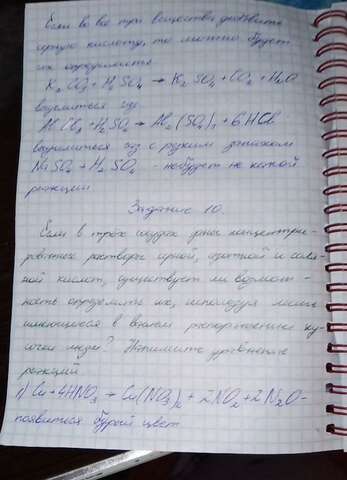 Если во все три вещества добавить
серную кислоту, то можно будет
их определить
K2CO3 + H2SO4 → K2SO4 + CO2 + H2O
выделится газ
AlCl3 + H2SO4 → Al2(SO4)3 + 6HCl
выделится газ с резким запахом
NaSO4 + H2SO4 - не будет не какой
реакции
Задание 10.
Если в трёх сосудах даны концентри-
рованные растворы серной, азотной и соля-
ной кислот, существует ли возмож-
ность определить их, используя лишь
имеющиеся в вашем распоряжении ку-
сочки меди? Напишите уравнения
реакций
1) Cu + 4HNO3 → Cu(NO3)2 + 2NO2 + 2H2O -
появиться бурый цвет